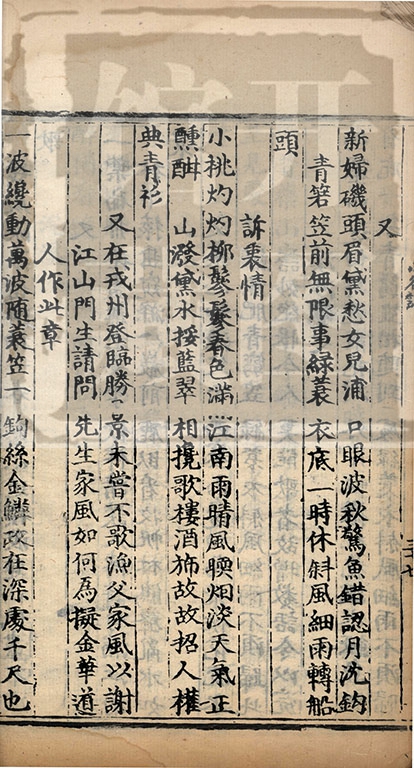 又
新婦磯頭眉黛愁女兒浦口眼波秋驚魚錯認月沈鈎
青箬笠前無限事緑蓑衣底一時休斜風細雨轉船
頭
訴衷情
小桃灼灼柳鬖鬖春色滿江南雨晴風暖烟淡天氣正
醺酣 山潑黛水挼藍翠相攙歌樓酒斾故故招人權
典青衫
又在戎州登臨勝景未嘗不歌漁父家風以謝
江山門生請問先生家風如何為擬金華道
人作此章
一波纔動萬波随蓑笠一鈎絲金鱗政在深處千尺也